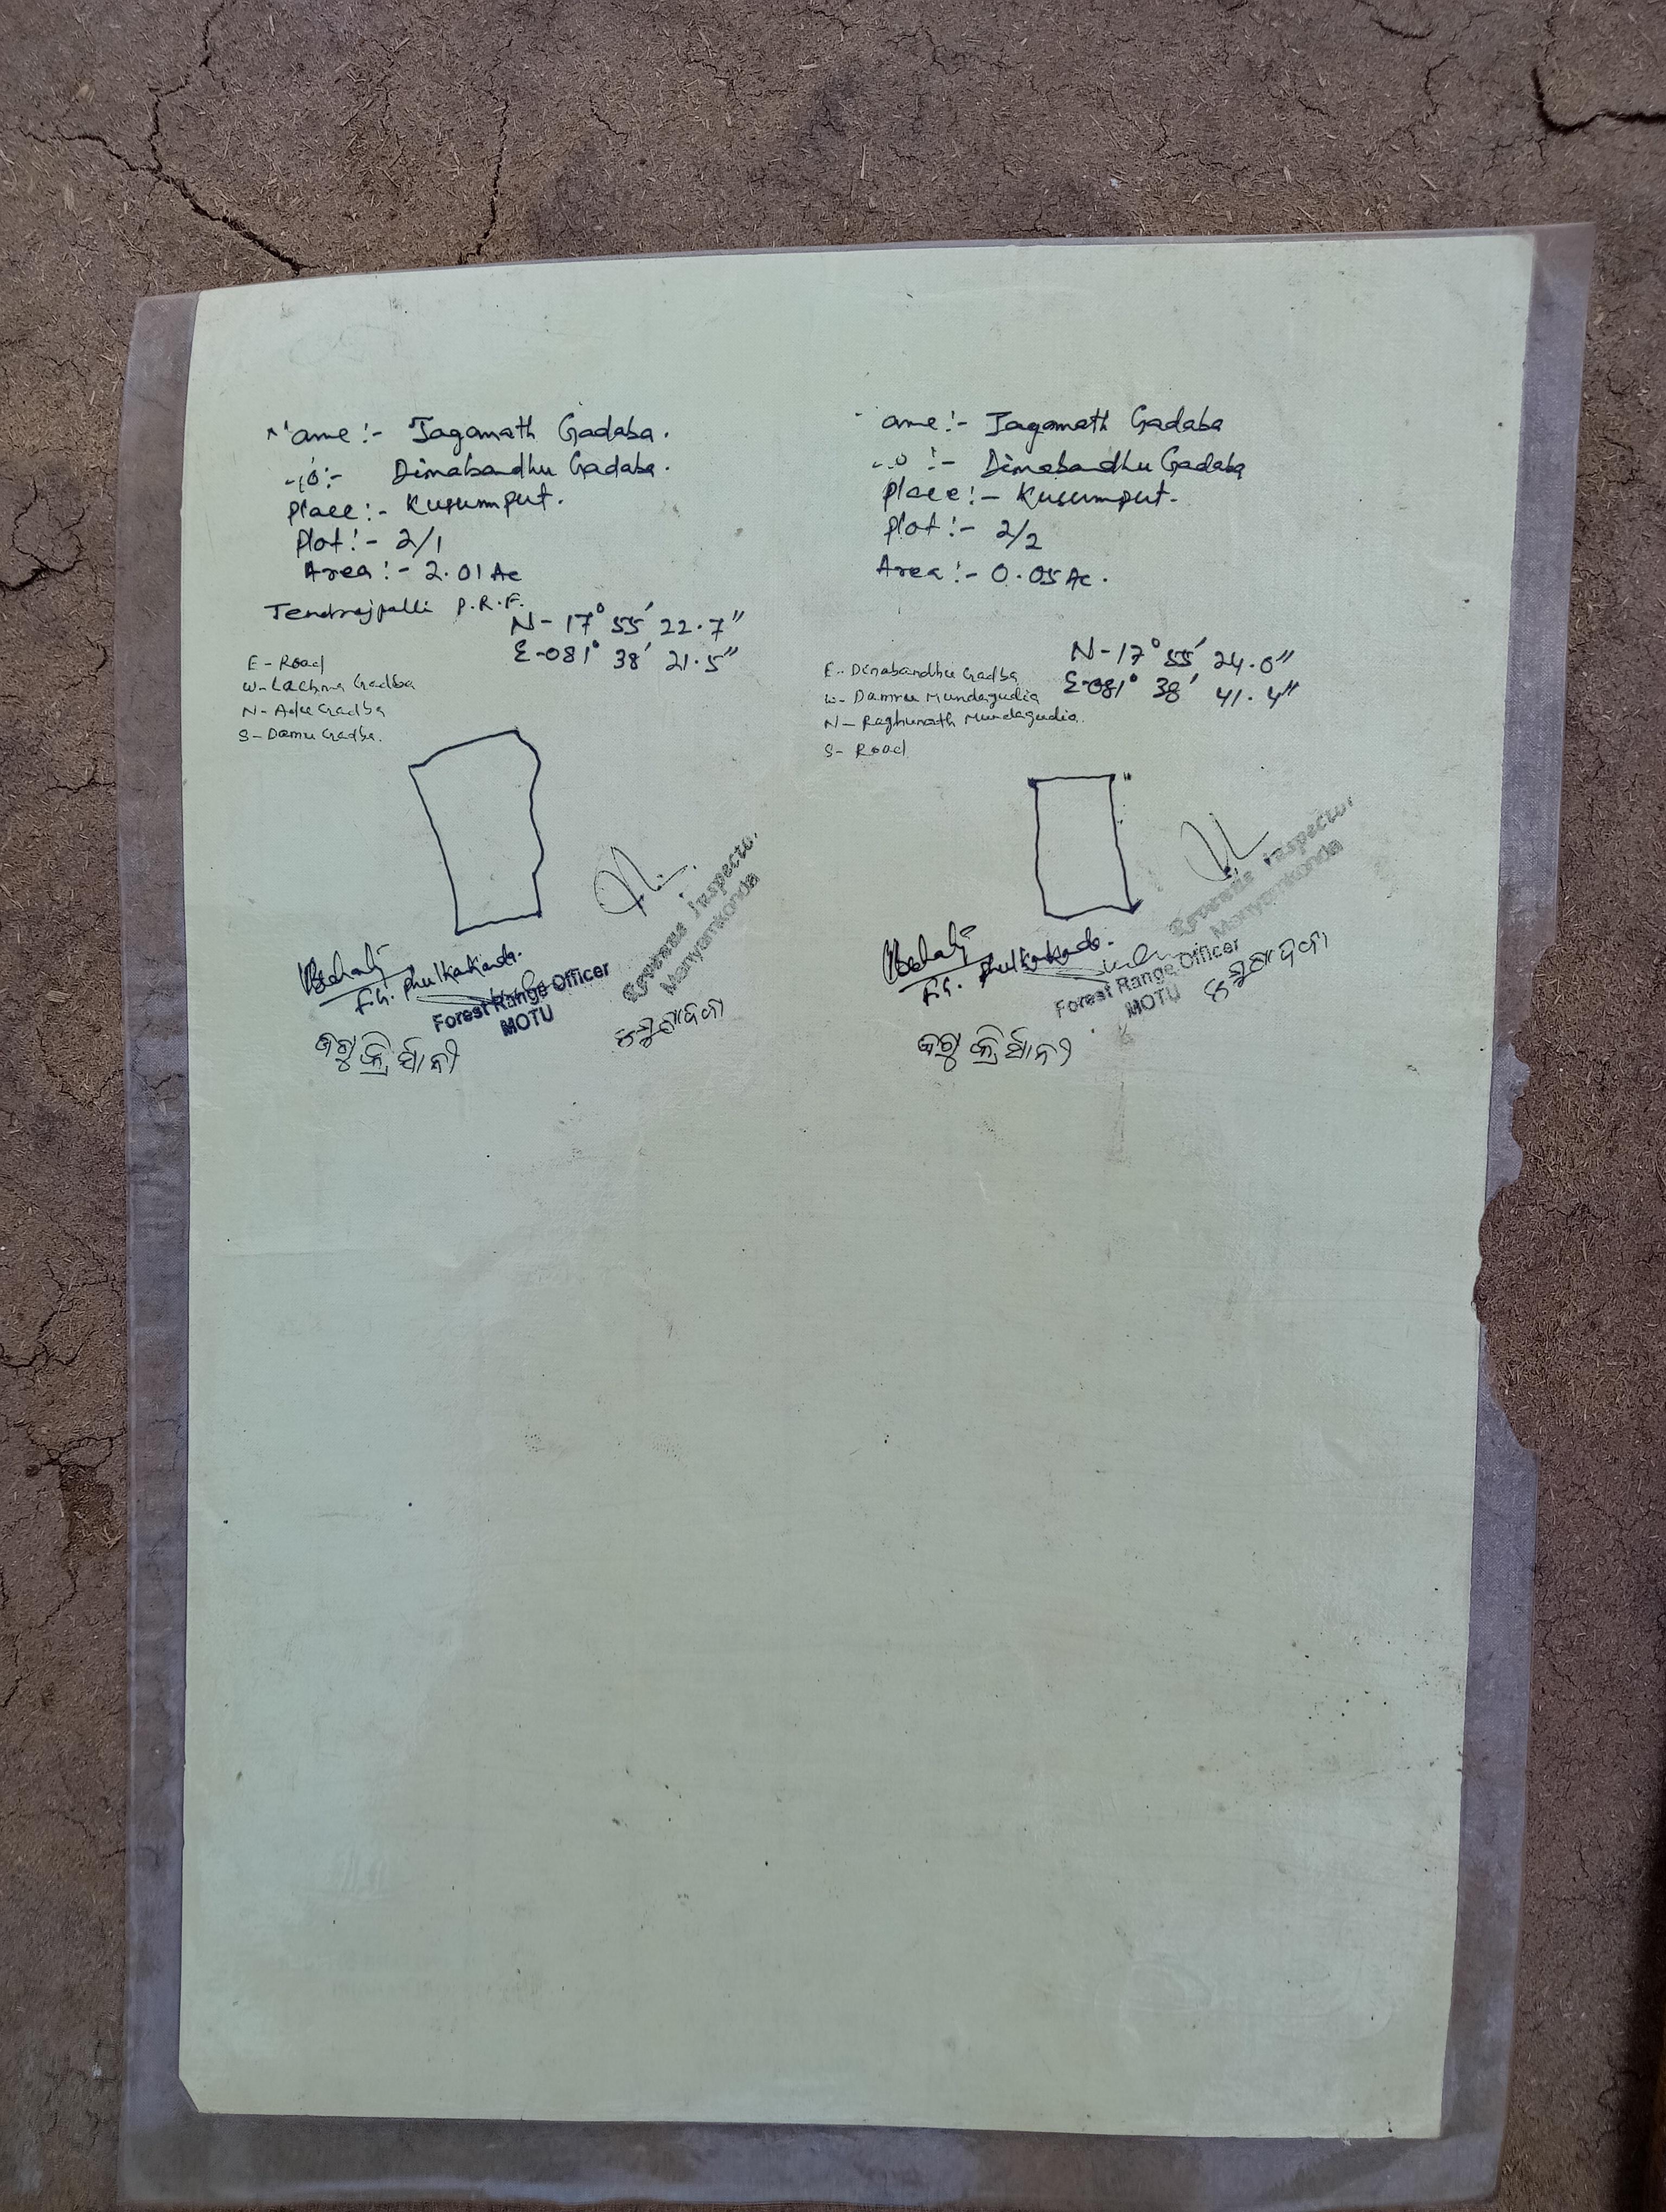 Name :- Jaganath Gadaba.
Dinabandhu Gadaba.
Place :- Kusumput.
Plot :- 2/1
Area :- 2.01 Ac
Tendrajpalli P.R.F.
N- 17° 55' 22.7"
E-081° 38' 21.5"
E - Road
W- Lachma Gadba
N- Adu Gadba
S- Damu Gadba.
F.G. Phulkakonda.
Forest Range Officer
MOTU
Revenue Inspector
Manyamkonda
ame :- Jaganath Gadaba
Dinabandhu Gadaba
Place :- Kusumput.
Plot :- 2/2
Area :- 0.05 Ac.
N-17° 55' 24.0"
E-081° 38' 41.4"
E- Dinabandhu Gadba
W- Damru Mundagudia
N- Raghunath Mundagudia.
S- Road
F.G. Phulkakonda.
Forest Range Officer
MOTU
Revenue Inspector
Manyamkonda